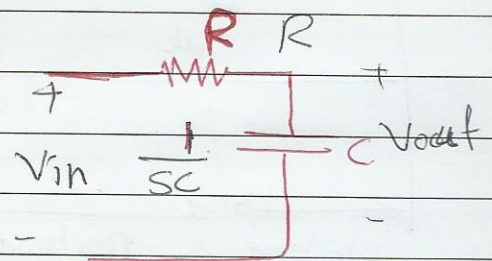 R R
+ +
Vin 1/SC C Vout
- -